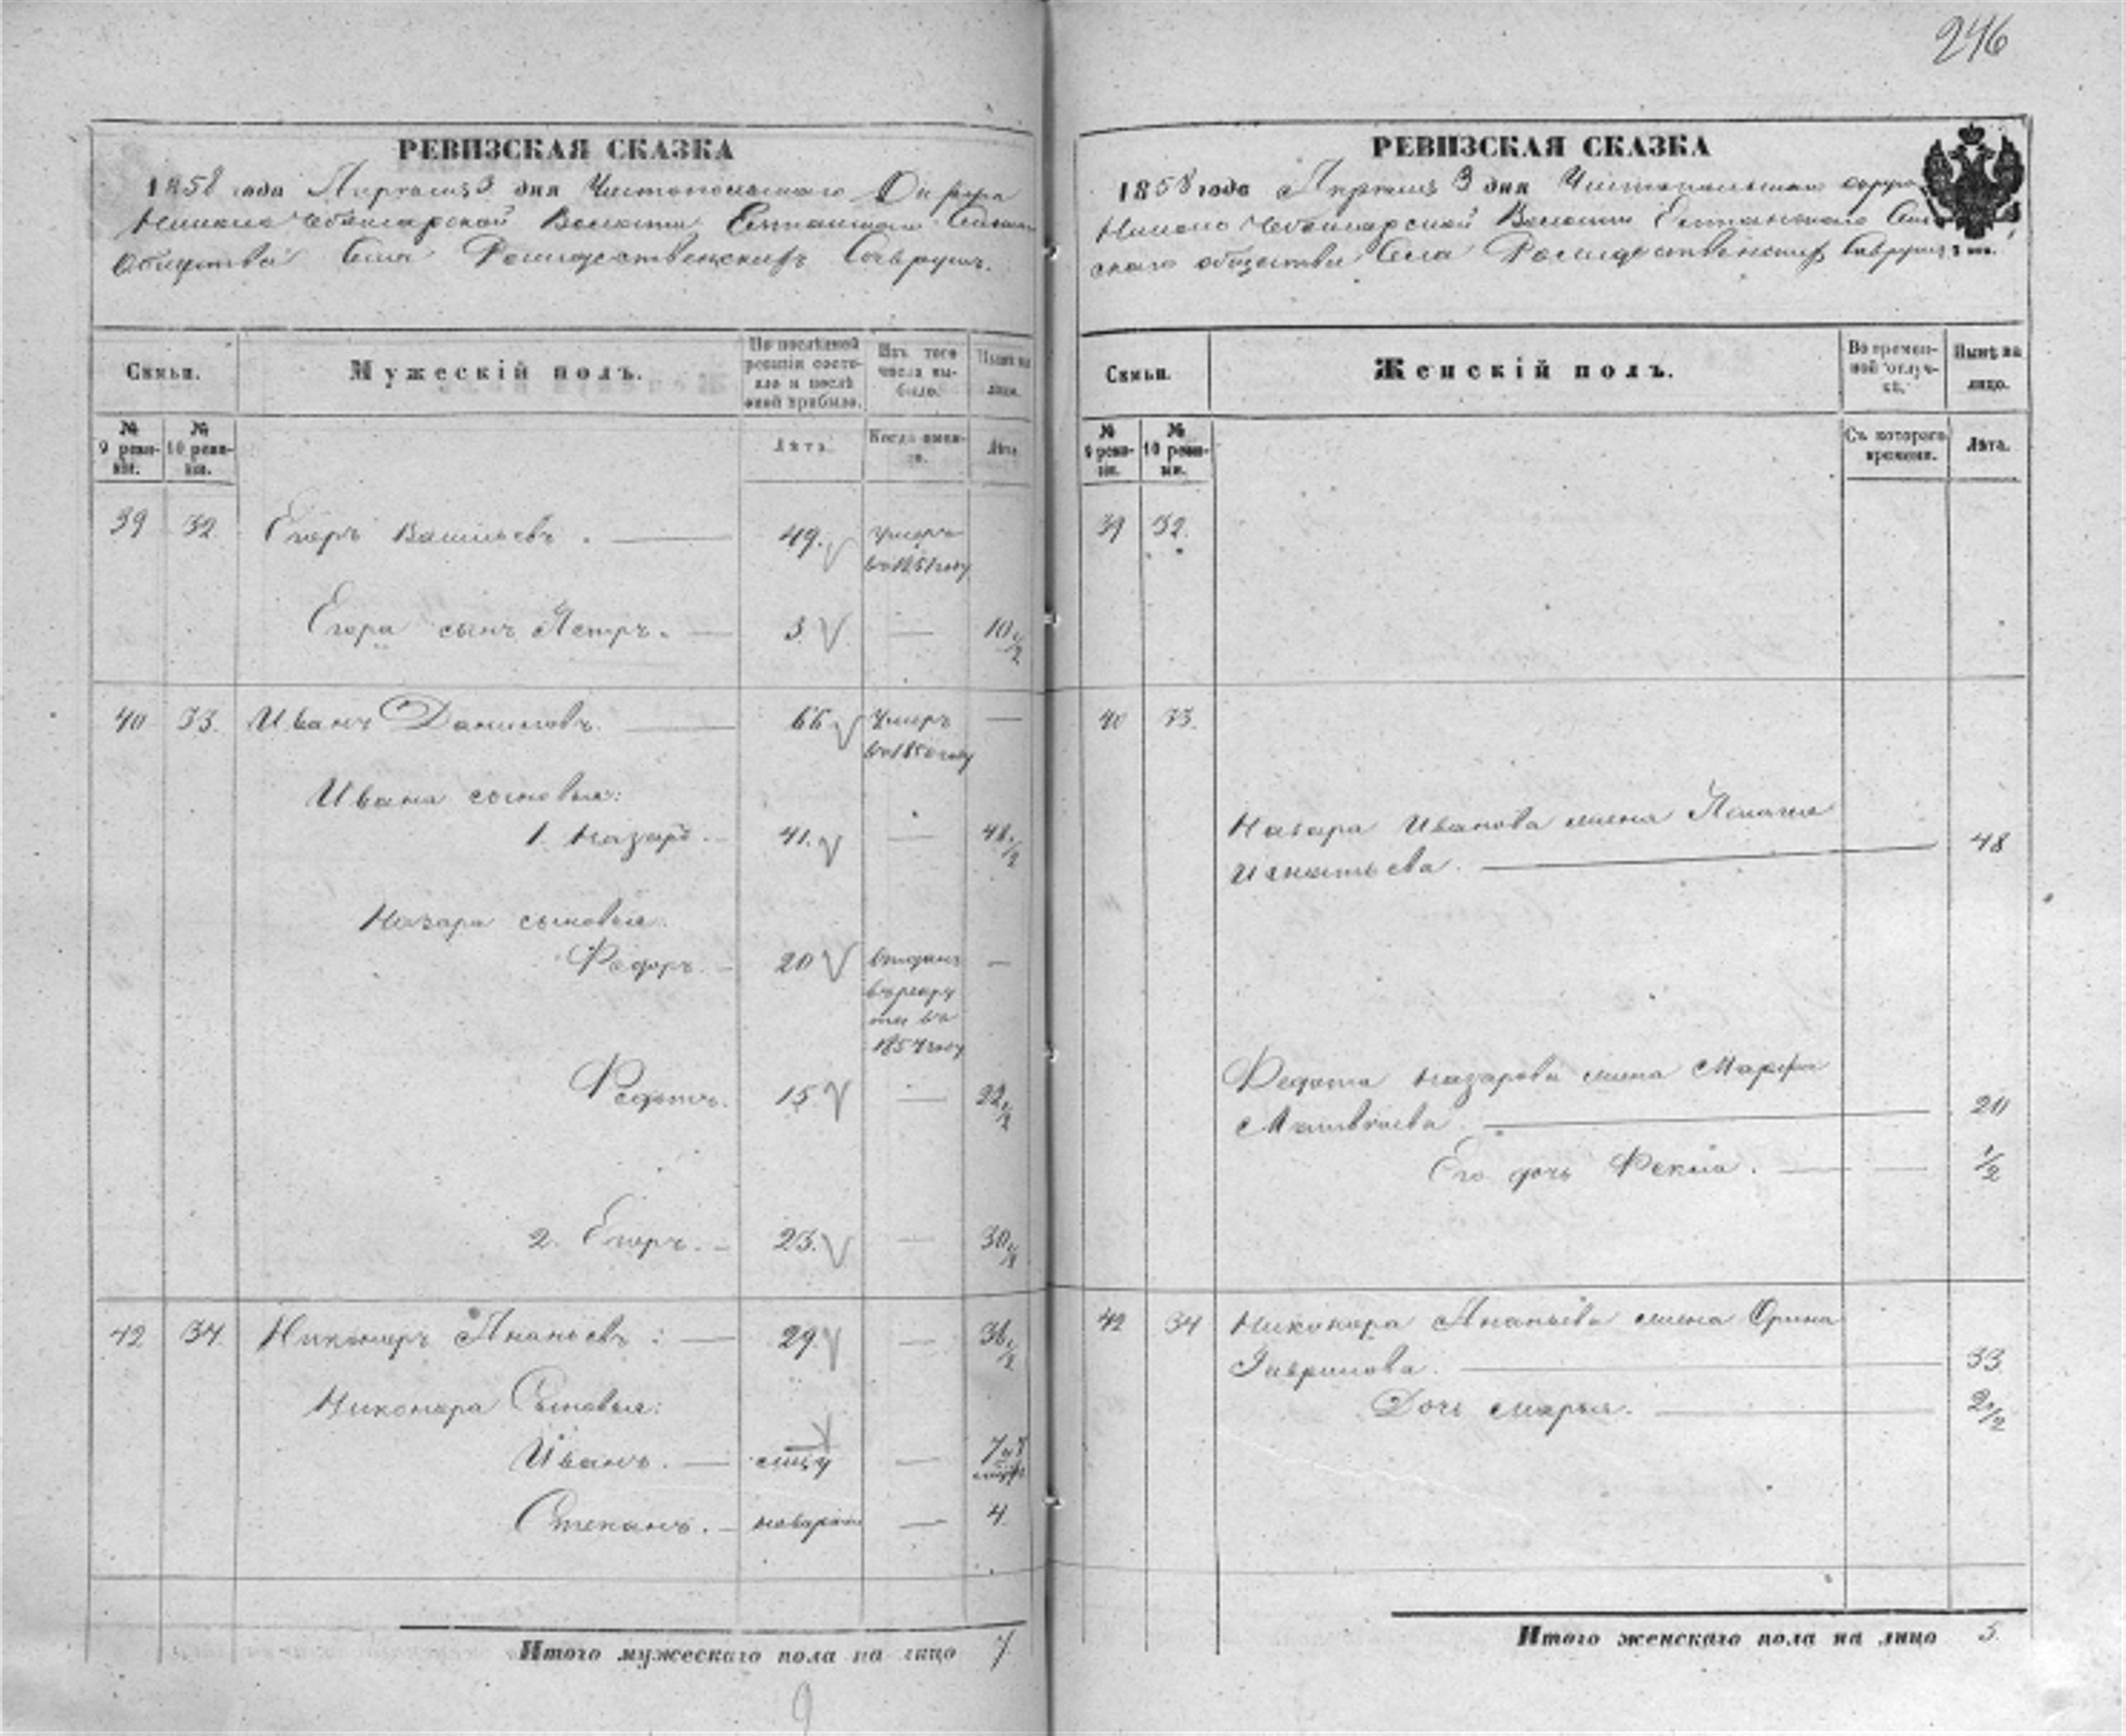 246
РЕВИЗСКАЯ СКАЗКА
1858 года Апреля 3 дня Чистопольскаго Округа
Волости
Общества Села Рождественскихъ Савруш
Семьи.
Мужескій полъ.
По послѣдней ревизіи состояло и послѣ оной прибыло.
Изъ того числа выбыло.
Нынѣ на лицо.
№ 9 ревизіи.
№ 10 ревизіи.
Лѣта.
Когда именно.
Лѣта.
39 32 Егоръ Васильевъ. 49. умеръ
въ 1851 году
Егора сынъ Петръ. 3. — 10 1/2
40 33. Иванъ Даниловъ. 66 умеръ —
въ 1850 году
Ивана сыновья:
1. Назаръ. 41. — 48 1/2
Назара сыновья
Федоръ. 20 отданъ —
въ рекру
ты въ
1854 году
Федотъ. 15. — 22 1/2
2. Егоръ. 23. — 30 1/2
42 34. Никоноръ Ананьевъ: 29. — 36 1/2
Никонора Сыновья:
Иванъ. — — 7
Степанъ. — — 4
Итого мужескаго пола на лицо 7.
9
РЕВИЗСКАЯ СКАЗКА
1858 года Апреля 3 дня Чистопольскаго округа
Волости
скаго общества Села Рождественскихъ Савруш
Семьи.
Женскій полъ.
Во временной отлучкѣ.
Нынѣ на лицо.
№ 9 ревизіи.
№ 10 ревизіи.
Съ котораго времени.
Лѣта.
39 32.
40 33.
Назара Иванова жена
Игнатьева. 48
Федота Назарова жена Марфа
Матвѣева. 20
Его дочь Фекла. — — 1/2
42 34 Никонора Ананьева жена Орина
Гаврилова. 33.
Дочь Марья. 2 1/2
Итого женскаго пола на лицо 5.